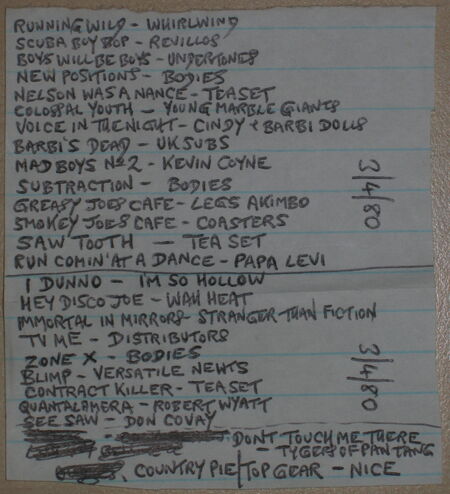 RUNNING WILD - WHIRLWIND
SCUBA BOY BOP - REVILLOS
BOYS WILL BE BOYS - UNDERTONES
NEW POSITIONS - BODIES
NELSON WAS A NANCE - TEASET
COLOSSAL YOUTH - YOUNG MARBLE GIANTS
VOICE IN THE NIGHT - CINDY + BARBI DOLLS
BARBI'S DEAD - UK SUBS
MAD BOYS No 2 - KEVIN COYNE
SUBTRACTION - BODIES
GREASY JOES CAFE - LEGS AKIMBO
SMOKEY JOES CAFE - COASTERS
SAW TOOTH - TEA SET
RUN COMIN' AT A DANCE - PAPA LEVI
3/4/80
I DUNNO - I'M SO HOLLOW
HEY DISCO JOE - WAH HEAT
IMMORTAL IN MIRRORS - STRANGER THAN FICTION
TV ME - DISTRIBUTORS
ZONE X - BODIES
BLIMP - VERSATILE NEWTS
CONTRACT KILLER - TEASET
QUANTALAMERA - ROBERT WYATT
SEE SAW - DON COVAY
3/4/80
DON'T TOUCH ME THERE
- TYGERS OF PAN TANG
COUNTRY PIE/TOP GEAR - NICE